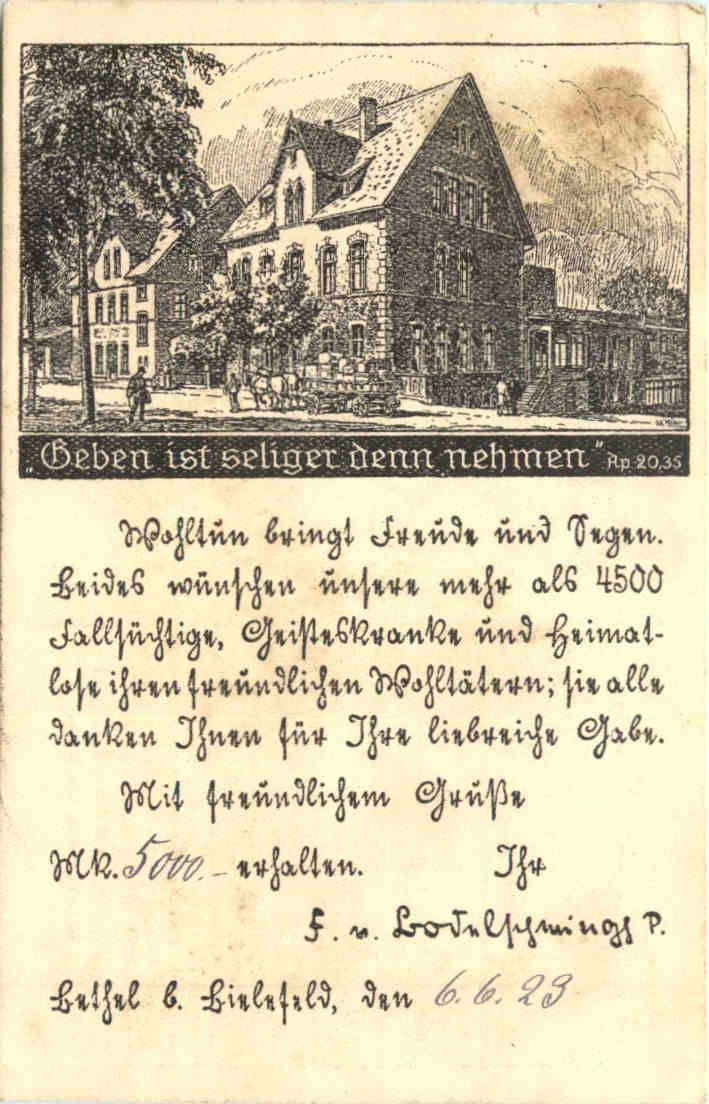 „Geben ist seliger denn nehmen" Ap. 20,35
Wohltun bringt Freude und Segen.
Beides wünschen unsere mehr als 4500
Fallsüchtige, Geisteskranke und Heimat-
lose ihren freundlichen Wohltätern; sie alle
danken Ihnen für Ihre liebreiche Gabe.
Mit freundlichem Gruße
Mk. 5000.- erhalten. Ihr
F. v. Bodelschwingh P.
Bethel b. Bielefeld, den 6.6.23